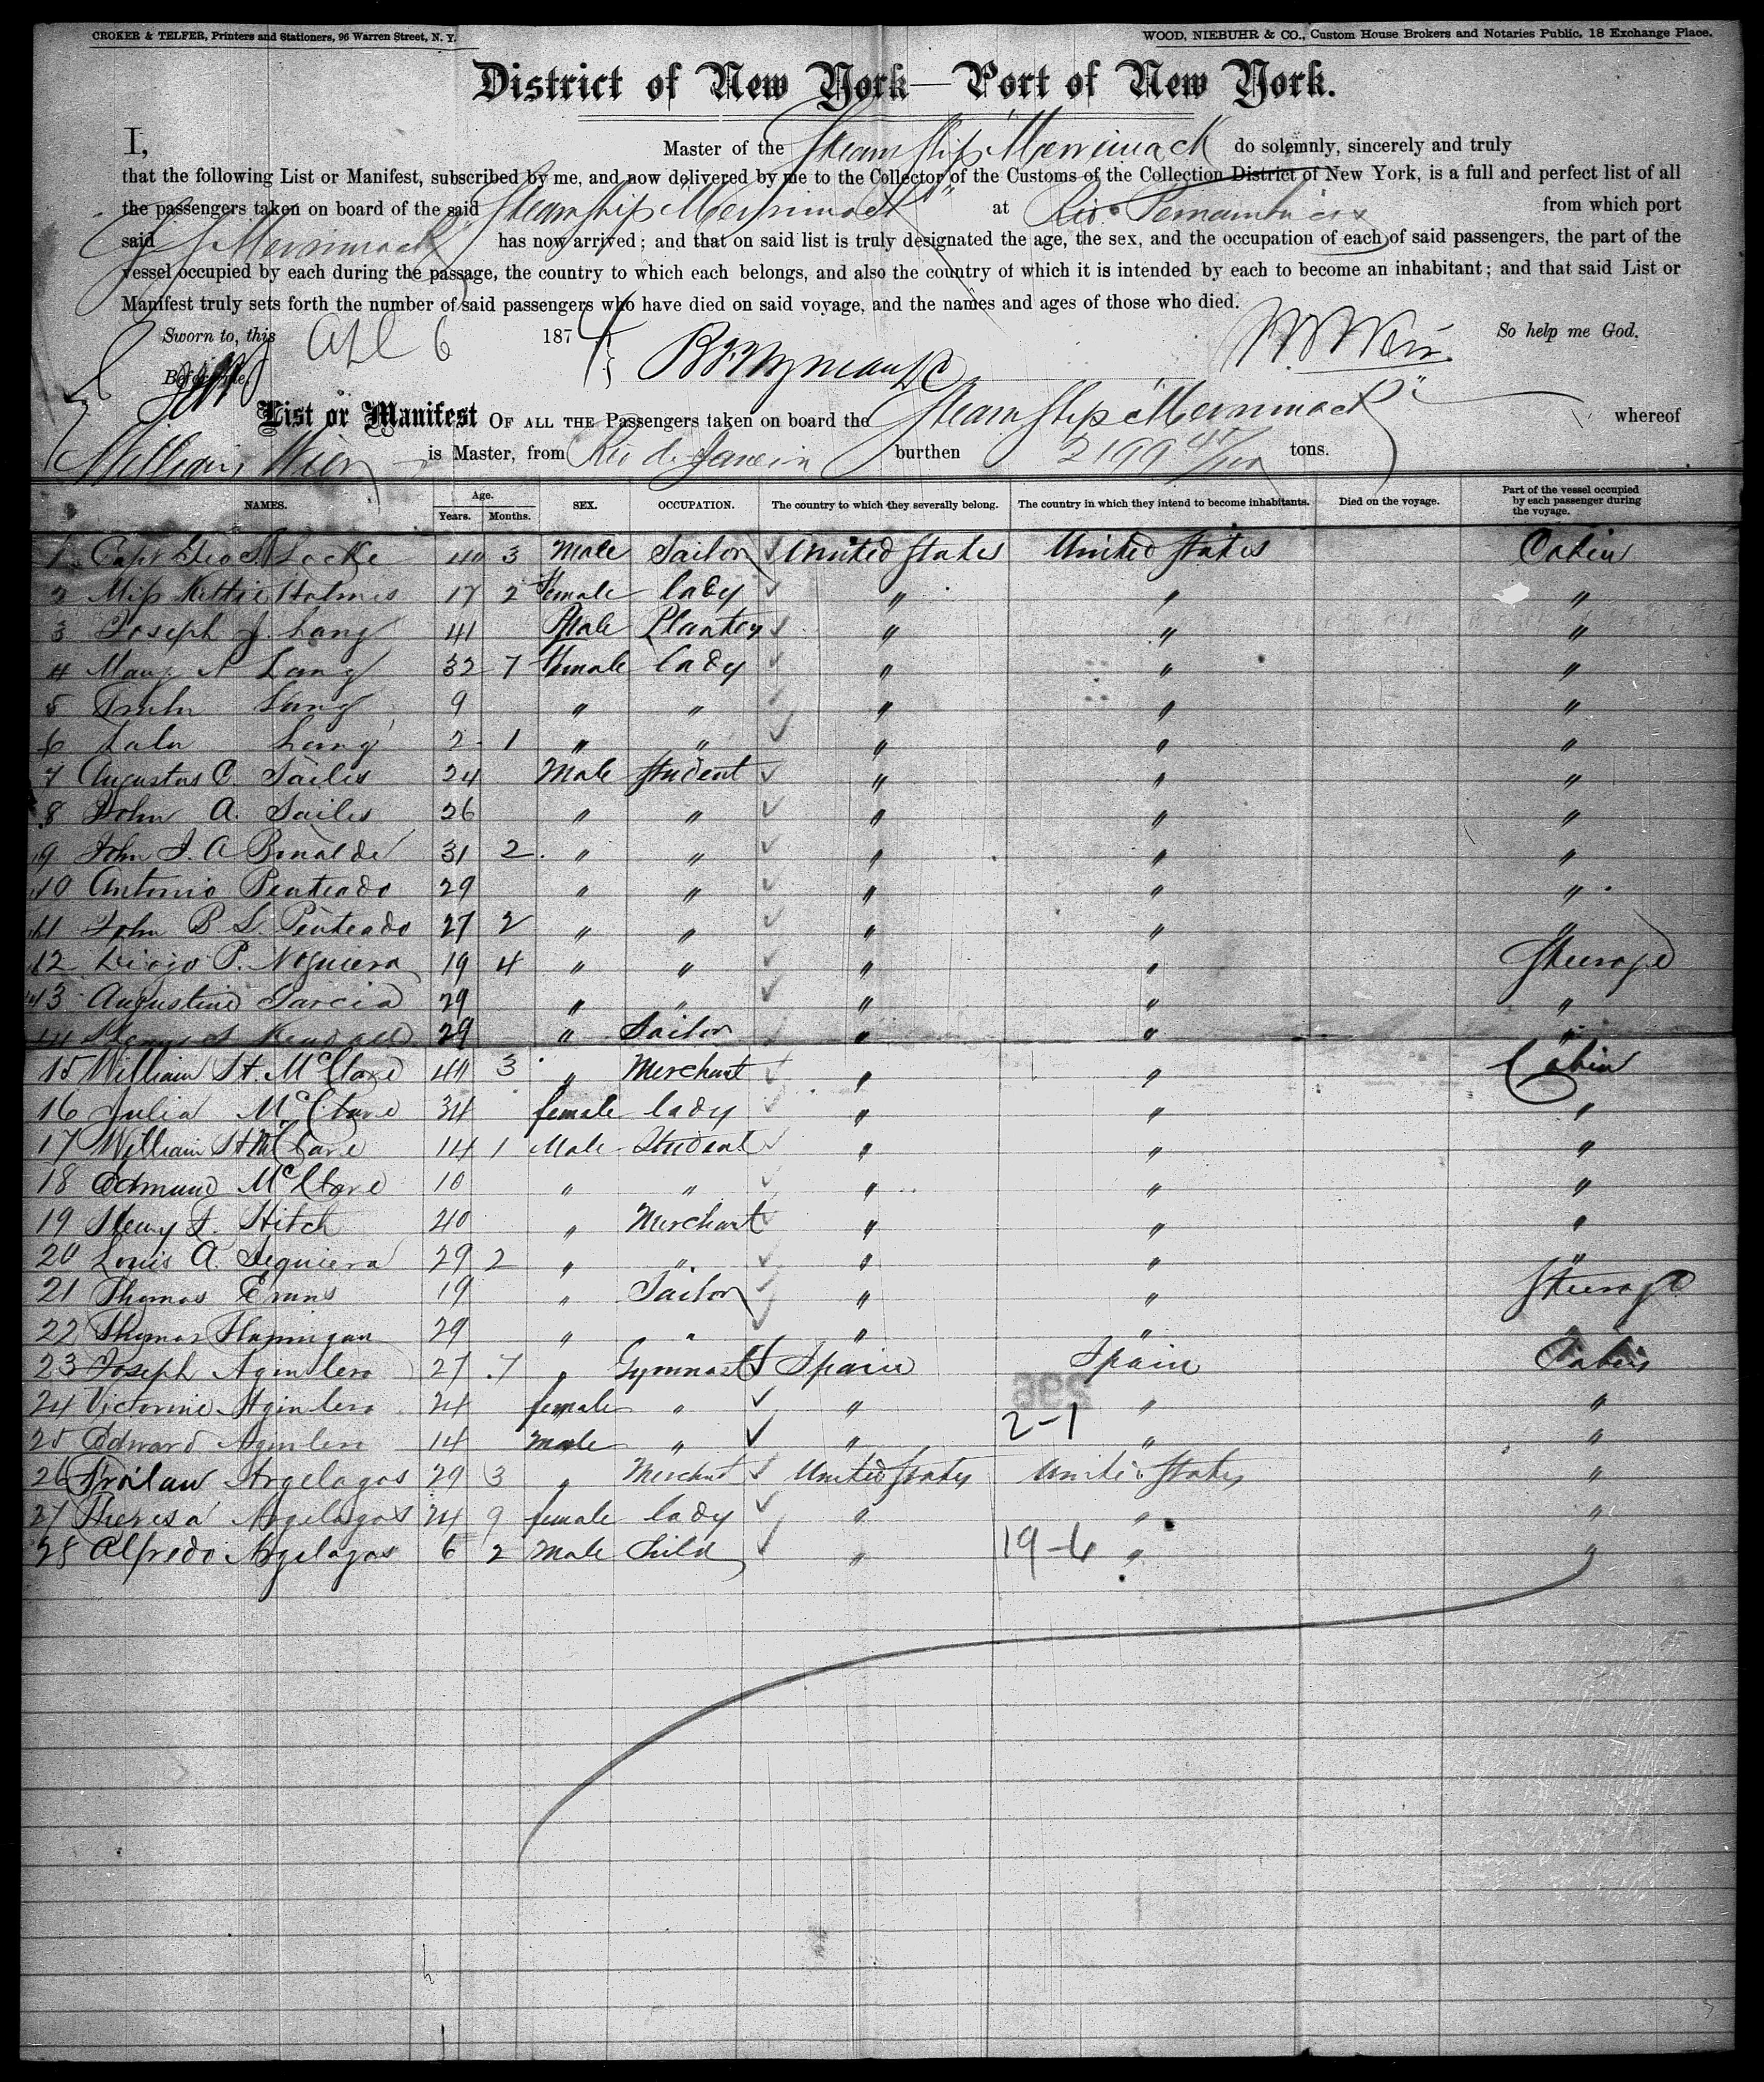 CROKER & TELFER, Printers and Stationers, 96 Warren Street, N. Y.
WOOD, NIEBUHR & CO., Custom House Brokers and Notaries Public, 18 Exchange Place.
District of New York—Port of New York.
I, Master of the Steam Ship Merrimack do solemnly, sincerely and truly
that the following List or Manifest, subscribed by me, and now delivered by me to the Collector of the Customs of the Collection District of New York, is a full and perfect list of all
the passengers taken on board of the said Steamship "Merrimack" at Rio from which port
said Merrimack has now arrived; and that on said list is truly designated the age, the sex, and the occupation of each of said passengers, the part of the
vessel occupied by each during the passage, the country to which each belongs, and also the country of which it is intended by each to become an inhabitant; and that said List or
Manifest truly sets forth the number of said passengers who have died on said voyage, and the names and ages of those who died.
Sworn to, this Apl 6 1874 So help me God.
Before me,
List or Manifest OF ALL THE Passengers taken on board the Steam Ship "Merrimack" whereof
William Wier is Master, from Rio de Janeiro burthen 2199 tons.
NAMES. Age. Years. Months. SEX. OCCUPATION. The country to which they severally belong. The country in which they intend to become inhabitants. Died on the voyage. Part of the vessel occupied by each passenger during the voyage.
1 Capt Geo S Locke 40 3 Male Sailor United States United States Cabin
2 Miss Kittie Holmes 17 2 Female lady " " "
3 Joseph J. Lang 41 Male Planter " " "
4 Mary Lang 32 7 Female lady " " "
5 Lang 9 " " " " "
6 Lulu Lang 2 1 " " " " "
7 Augustus C. Sailes 24 Male Student " " "
8 John A. Sailes 26 " " " " "
9 John J. A 31 2 " " " " "
10 Antonio Penteado 29 " " " " "
11 John B L Penteado 27 2 " " " " "
12 P. 19 4 " " " " Steerage
13 Augustine Garcia 29 " " " " "
14 Kendall 29 " Sailor " " "
15 William H. McClave 40 3 " Merchant " " Cabin
16 Julia McClave 34 female lady " " "
17 William H McClave 14 1 Male Student " " "
18 Edmund McClave 10 " " " " "
19 Henry Hitch 40 " Merchant " " "
20 Louis A. Sequiera 29 2 " " " " "
21 Thomas Evans 19 " Sailor " " Steerage
22 Thomas Flannigan 29 " " " "
23 Joseph Aguilero 27 7 " Gymnast Spain Spain Cabin
24 Victorine Aguilero 24 female " " " "
2-1
25 Edward Aguilero 14 male " " " "
26 Argelagos 29 3 " Merchant United States United States "
27 Theresa Argelagos 24 9 female lady " " "
28 Alfredo Argelagos 6 2 Male Child " 19-6 " "